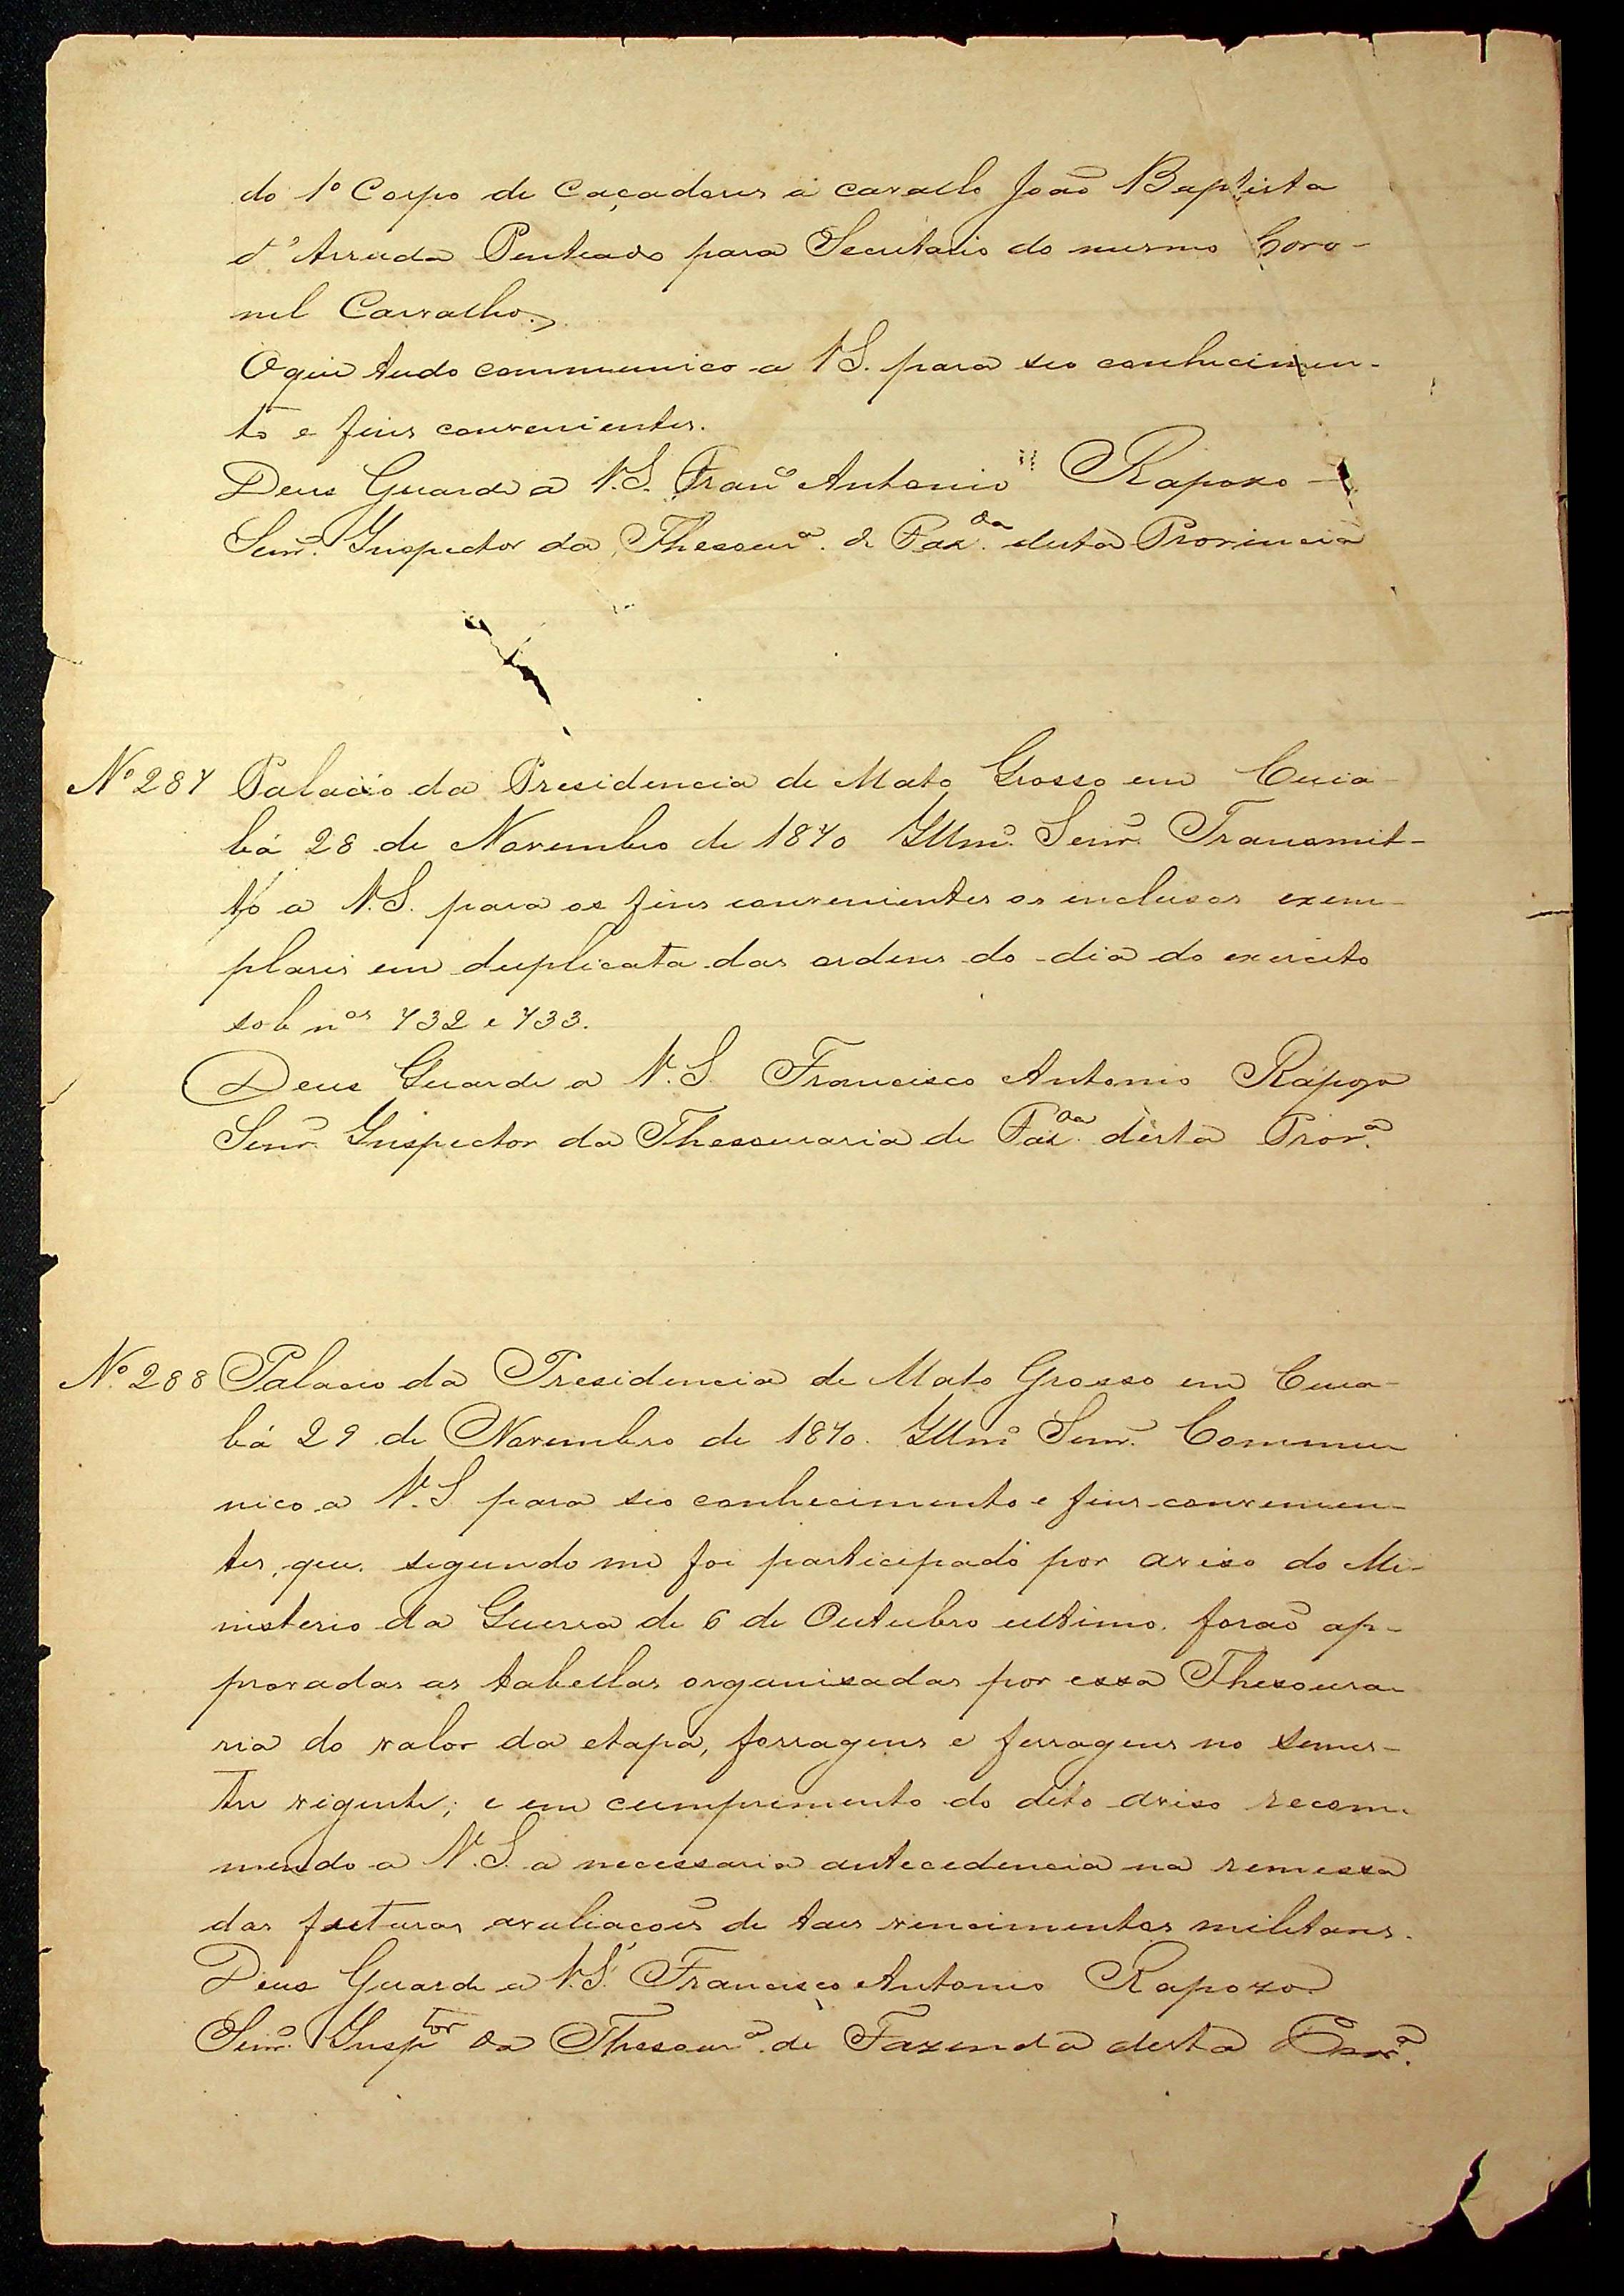 do 1º Corpo de Caçadores a cavallo João Baptista
d'Arruda Penteado para Secretario do mesmo Coro-
nel Carvalho.
O que tudo communico a V.S. para seo conhecimen-
to e fins convenientes.
Deus Guarde a V.S. Franco Antonio Rapozo -
Senr. Inspector da Thesoura. de Fazda. desta Provincia
Nº 287 Palacio da Presidencia de Mato Grosso em Cuia
bá 28 de Novembro de 1870 Illmo. Senr. Transmit-
to a V.S. para os fins convenientes os inclusos exem-
plares em duplicata das ordens do dia do exercito
sob nos 732 e 733.
Deus Guarde a V.S. Francisco Antonio Rapozo
Senr. Inspector da Thesouraria de Fazda. desta Prova.
Nº 288 Palacio da Presidencia de Mato Grosso em Cuia-
bá 29 de Novembro de 1870. Illmo Senr. Commu
nico a V.S. para seo conhecimento e fins convenien-
tes, que, segundo me foi participado por aviso do Mi-
nisterio da Guerra de 6 de Outubro ultimo, forão ap-
provadas as tabellas organisadas por essa Thesoura-
ria do valor da etapa, forragens e ferragens no semes-
tre vigente; e em cumprimento do dito aviso recom-
mendo a V.S. a necessaria antecedencia na remessa
das futuras avaliações de taes vencimentos militares.
Deus Guarde a V.S. Francisco Antonio Rapozo
Senr. Insptor da Thesoura. de Fazenda desta Prova.